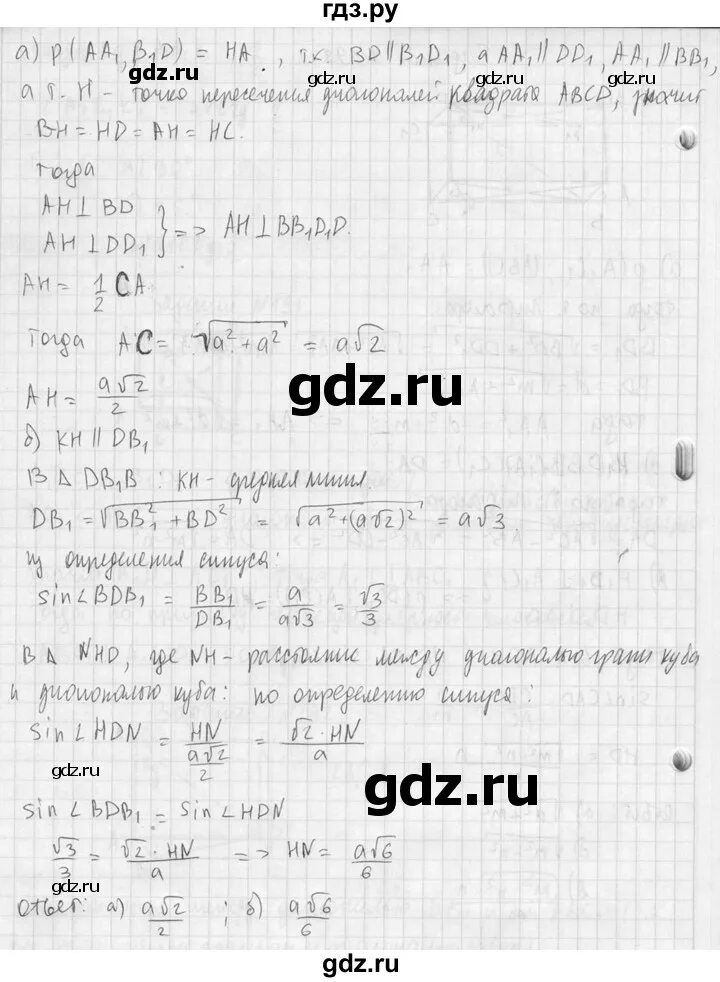 гдз.ру
а) ρ(AA₁, B₁D) = HA, т.к. BD ∥ B₁D₁, а AA₁ ∥ DD₁, AA₁ ∥ BB₁,
gdz.ru
gdz.ru
а т. H - точка пересечения диагоналей квадрата ABCD, значит
BH = HD = AH = HC.
тогда
gdz.ru
AH ⊥ BD
AH ⊥ DD₁ } => AH ⊥ BB₁D₁D.
AH = 1/2 CA
gdz.ru
тогда AC = √(a² + a²) = a√2
AH = a√2/2
gdz.ru
gdz.ru
б) KH ∥ DB₁
В Δ DB₁B : KH - средняя линия
DB₁ = √(BB₁² + BD²) = √(a² + (a√2)²) = a√3.
gdz.ru
из определения синуса:
sin∠BDB₁ = BB₁/DB₁ = a/a√3 = √3/3
gdz.ru
В Δ NHD, где NH - расстояние между диагональю грани куба
и диагональю куба: по определению синуса:
sin∠HDN = HN/(a√2/2) = √2·HN/a
gdz.ru
gdz.ru
sin∠BDB₁ = sin∠HDN
√3/3 = √2·HN/a => HN = a√6/6
gdz.ru
gdz.ru
Ответ: а) a√2/2 ; б) a√6/6
gdz.ru
gdz.ru